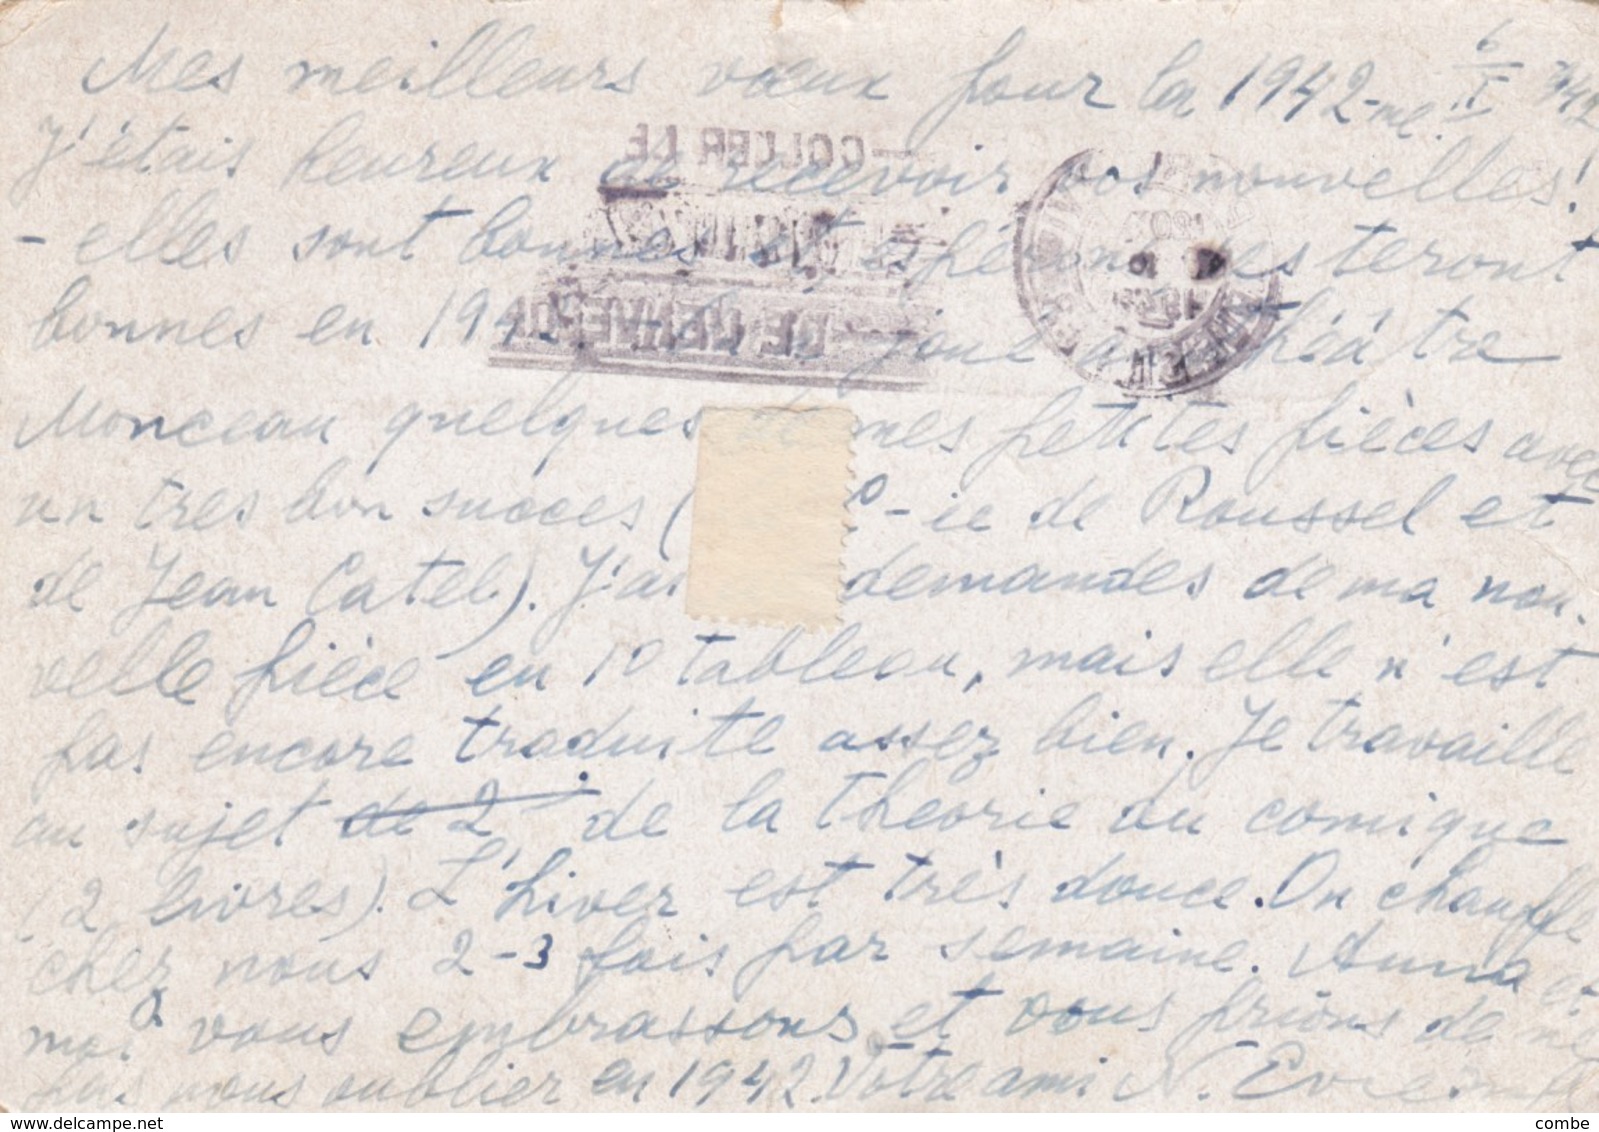 Mes meilleurs vœux pour la 1942-me. 6/I 42
J'étais heureux de recevoir vos nouvelles!
- elles sont bonnes et espérons, les teront
bonnes en 1942. joué au théâtre
Monceau quelques de mes petites pièces avec
un tres bon succes ( C-ie de Roussel et
de Jean Catel). J'ai demandes de ma nou-
velle pièce en 10 tableau, mais elle n'est
pas encore traduite assez bien. Je travaille
au sujet de 2 de la théorie du comique
(2 livres). L'hiver est très douce. On chauffe
chez nous 2-3 fois par semaine. Anna et
moi vous embrassons et vous prions de ne
pas nous oublier en 1942. Votre ami N. Evreinoff
COLLER LE
DE L'ENVELOPPE
combe